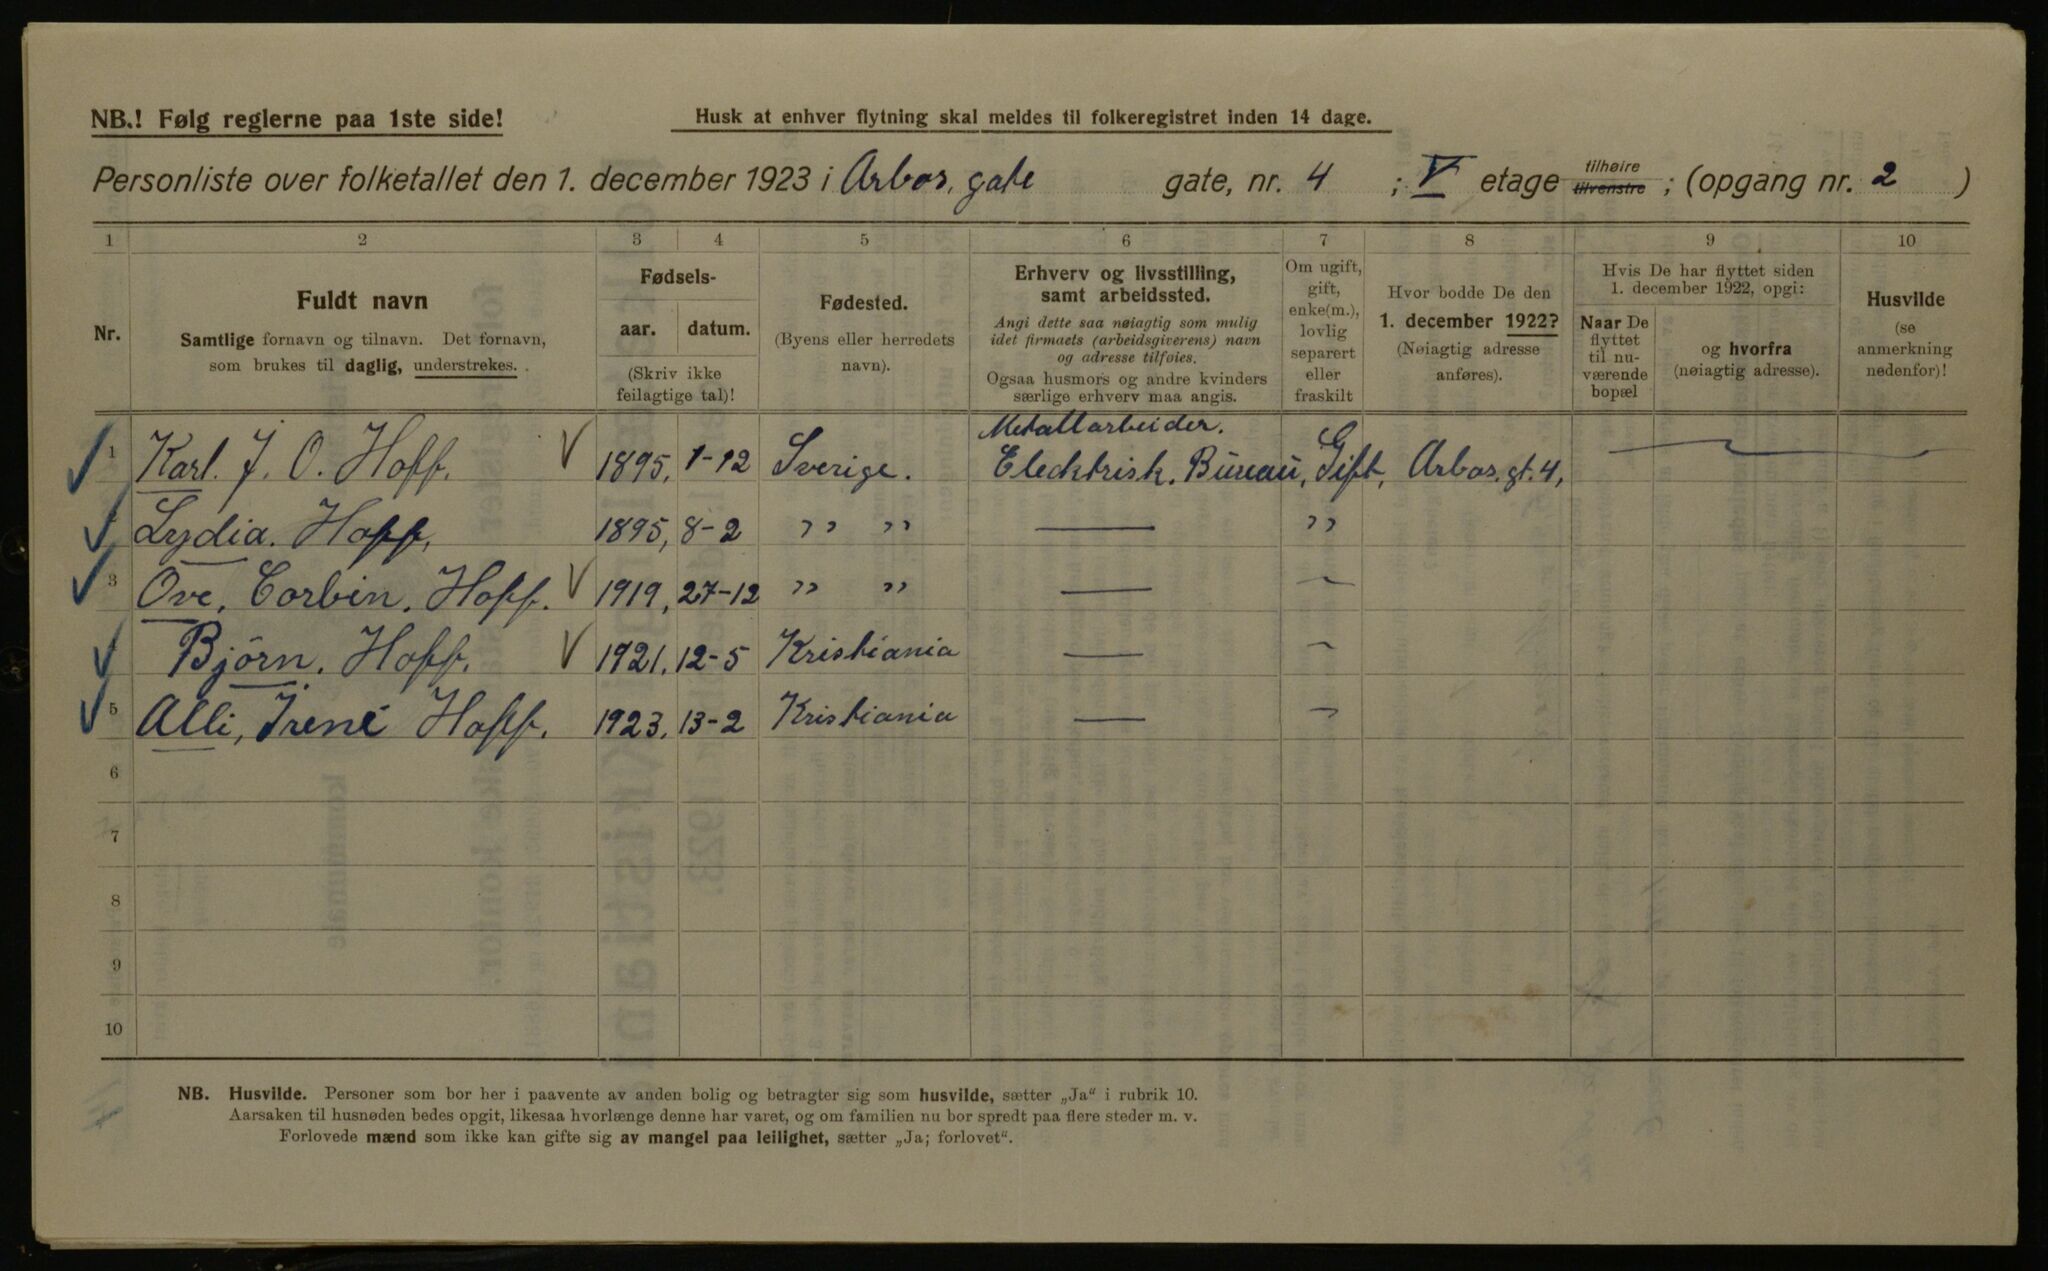 NB.! Følg reglerne paa 1ste side!
Husk at enhver flytning skal meldes til folkeregistret inden 14 dage.
Personliste over folketallet den 1. december 1923 i Arbos, gate gate, nr. 4 ; V etage tilhøire tilvenstre ; (opgang nr. 2 )
1 2 3 4 5 6 7 8 9 10
Nr.
Fuldt navn
Samtlige fornavn og tilnavn. Det fornavn,
som brukes til daglig, understrekes.
Fødsels-
aar. datum.
(Skriv ikke
feilagtige tal)!
Fødested.
(Byens eller herredets
navn).
Erhverv og livsstilling,
samt arbeidssted.
Angi dette saa nøiagtig som mulig
idet firmaets (arbeidsgiverens) navn
og adresse tilføies.
Ogsaa husmors og andre kvinders
særlige erhverv maa angis.
Om ugift,
gift,
enke(m.),
lovlig
separert
eller
fraskilt
Hvor bodde De den
1. december 1922?
(Nøiagtig adresse
anføres).
Hvis De har flyttet siden
1. december 1922, opgi:
Naar De
flyttet
til nu-
værende
bopæl
og hvorfra
(nøiagtig adresse).
Husvilde
(se
anmerkning
nedenfor)!
Metallarbeider.
1 Karl. J. O. Hoff. 1895, 1-12 Sverige. Elecktrisk. Bureau, Gift, Arbos. gt. 4,
Lydia. Hoff, 1895, 8-2 " " — "
3 Ove, Corbin, Hoff. 1919, 27-12 " " — -
Björn. Hoff. 1921. 12-5 Kristiania — -
5 Alli, Irene Hoff. 1923. 13-2 Kristiania — -
6
7
8
9
10
NB. Husvilde. Personer som bor her i paavente av anden bolig og betragter sig som husvilde, sætter „Ja“ i rubrik 10.
Aarsaken til husnøden bedes opgit, likesaa hvorlænge denne har varet, og om familien nu bor spredt paa flere steder m. v.
Forlovede mænd som ikke kan gifte sig av mangel paa leilighet, sætter „Ja; forlovet“.